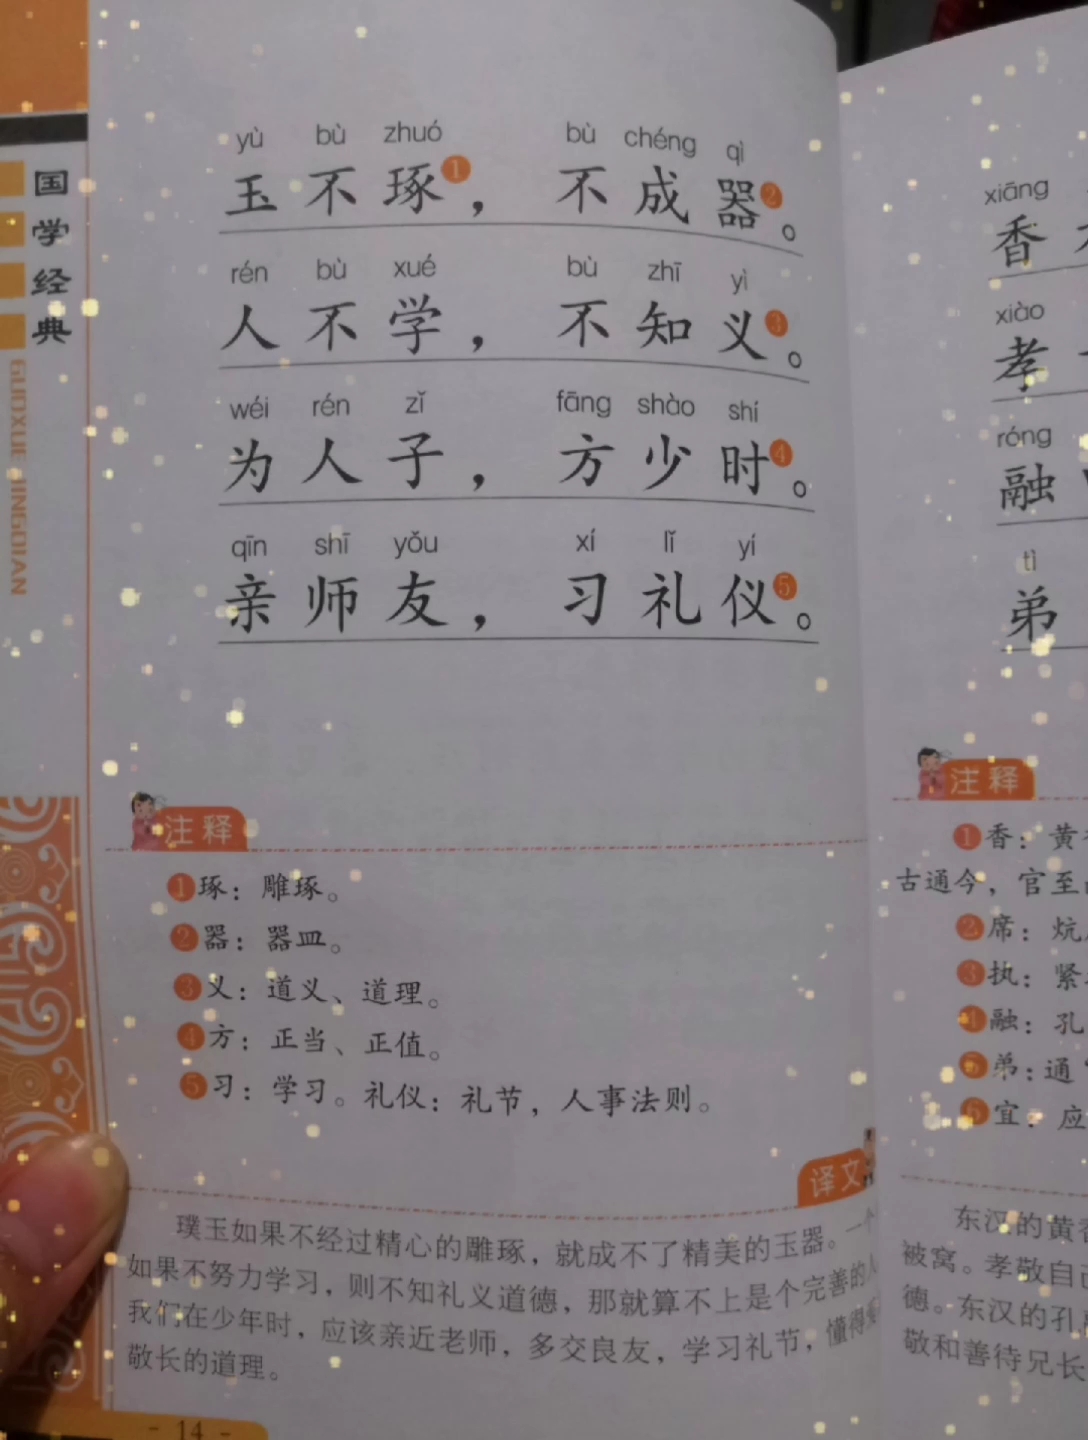 国学经典
GUOXUE JINGDIAN
yù bù zhuó bù chéng qì
玉不琢❶，不成器❷。
rén bù xué bù zhī yì
人不学，不知义❸。
wéi rén zǐ fāng shào shí
为人子，方少时❹。
qīn shī yǒu xí lǐ yí
亲师友，习礼仪❺。
注释
❶琢：雕琢。
❷器：器皿。
❸义：道义、道理。
❹方：正当、正值。
❺习：学习。礼仪：礼节，人事法则。
译文
璞玉如果不经过精心的雕琢，就成不了精美的玉器。一个
如果不努力学习，则不知礼义道德，那就算不上是个完善的人
我们在少年时，应该亲近老师，多交良友，学习礼节，懂得
敬长的道理。
- 14 -
xiāng
香
xiào
孝
róng
融
tì
弟
注释
❶香：黄
古通今，官至
❷席：炕
❸执：紧
❹融：孔
❺弟：通
❻宜：应
东汉的黄香
被窝。孝敬自己
德。东汉的孔
敬和善待兄长